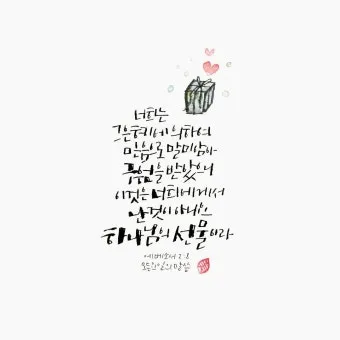 너희는
그 은혜에 의하여
믿음으로 말미암아
구원을 받았으니
이것은 너희에게서
난 것이 아니요
하나님의 선물이라
에베소서 2:8